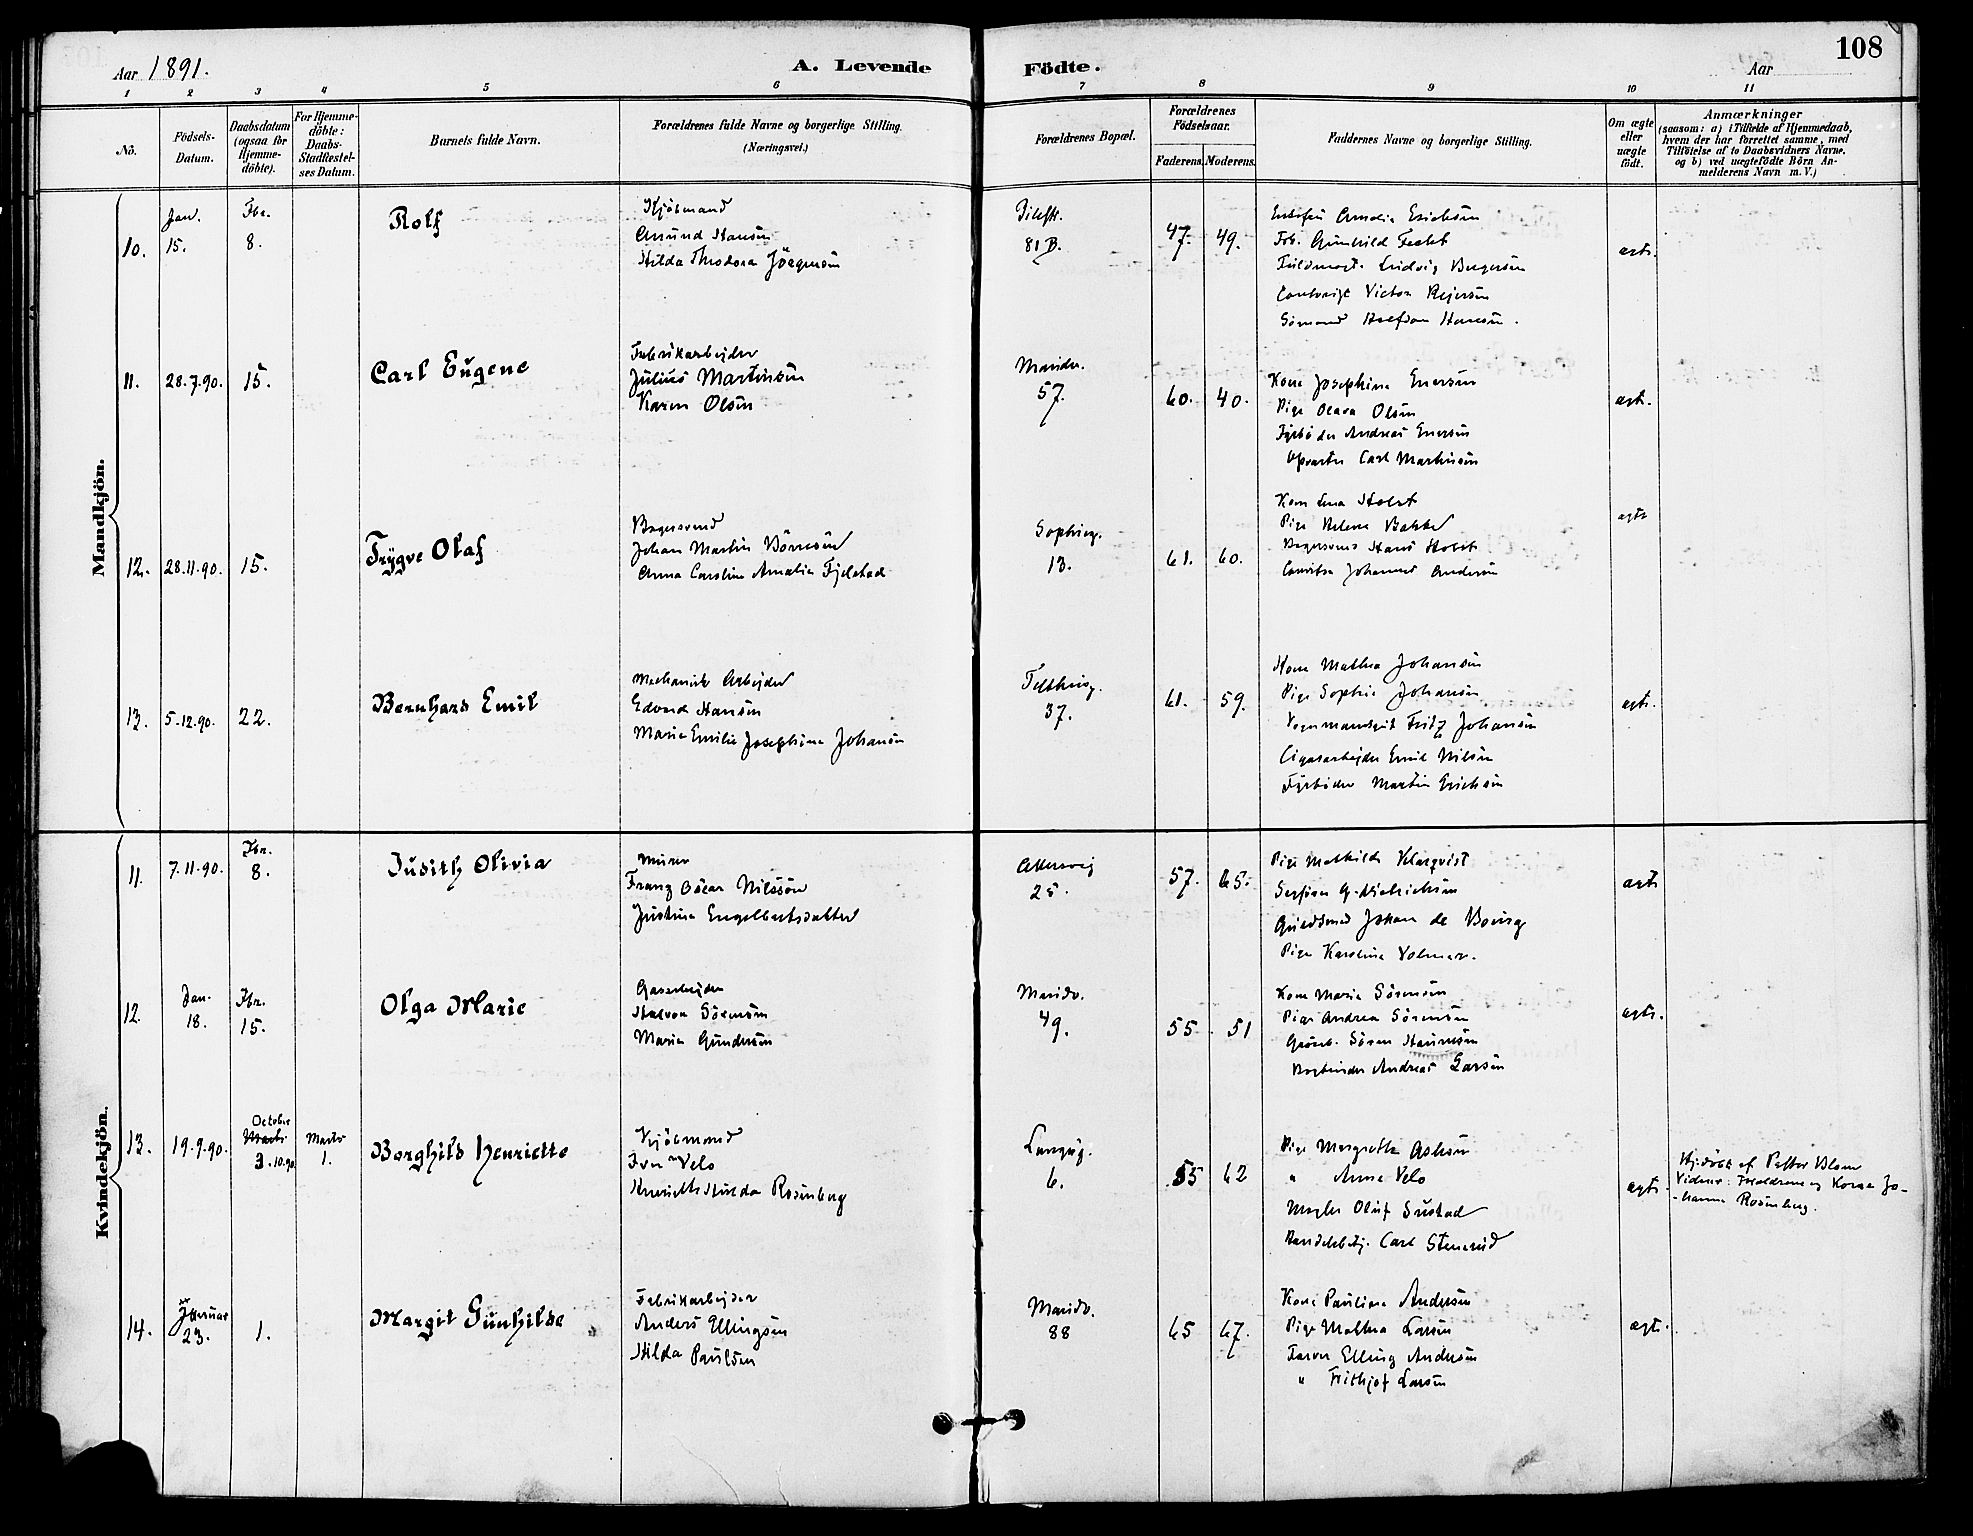 108
Aar 1891.
A. Levende Födte.
Aar
1 2 3 4 5 6 7 8 9 10 11
No.
Födsels-
Datum.
Daabsdatum
(ogsaa for
Hjemme-
döbte).
For Hjemme-
döbte:
Daabs-
Stadfæstel-
ses Datum.
Barnets fulde Navn.
Forældrenes fulde Navne og borgerlige Stilling.
(Næringsvei.)
Forældrenes Bopæl.
Forældrenes
Födselsaar.
Faderens. Moderens.
Faddernes Navne og borgerlige Stilling.
Om ægte
eller
uægte
födt.
Anmærkninger
(saasom: a) i Tilfælde af Hjemmedaab,
hvem der har forrettet samme, med
Tilföielse af to Daabsvidners Navne,
og b) ved uægtefödte Börn An-
melderens Navn m. V.)
Mandkjön.
10.
Jan.
15.
Fbr.
8.
Rolf
Kjöbmand
Amund Hansen
Hilda Theodora Jörgensen
Pilestr.
81 B.
47. 49.
Amalia Ericksen
Gunhild Fecht
Fuldmægt. Ludvig Bergersen
Victor Rejersen
Sömand Halfdan Hansen.
ægte.
11. 28.7.90. 15.
Carl Eugene
Fabrikarbejder
Julius Martinsen
Karen Olsen
Maridv.
57.
60. 40.
Kone Josephine Enersen
Pige Olava Olsen
Fyrböder Andreas Enersen
Opvarter Carl Martinsen
ægte.
12. 28.11.90. 15.
Trygve Olaf
Bagersvend
Johan Martin Börresen
Anna Caroline Amalie Fjelstad
Sophieg.
13.
61. 60.
Kone Lina Holst
Pige Helene Bakke
Bagersvend Hans Holst
Johannes Andersen
ægte
13. 5-12.90. 22.
Bernhard Emil
Mechanisk Arbejder
Edvard Hansen
Marie Emilie Josephine Johansen
Telthusg.
37.
61. 59.
Kone Mathea Johansen
Pige Sophie Johansen
Vognmandsgut Fritz Johansen
Cigararbejder Emil Nilsen
Fyrböder Martin Ericksen
ægte.
Kvindekjön.
11. 7.11.90.
Fbr.
8.
Judith Olivia
Murer
Franz Oscar Nilsson
Justina Engelbertsdatter
Akersvej
25.
57. 65.
Pige Mathilde Klarqvist
G. Dietrichsen
Guldsmed Johan de Bourg
Pige Karoline Volmar.
ægte
12.
Jan.
18.
Fbr.
15.
Olga Marie
Gasarbejder
Halvor Sörensen
Marie Gundersen
Maridv.
49.
55 51
Kone Maria Sörensen
Pige Andrea Sörensen
Sören Hansen
Bogbinder Andreas Larsen
ægte.
13. 19.9.90.
October
Marts
3.10.90
Marts
1.
Borghild Henriette
Kjöbmand
Iver Velo
Henriette Hulda Rosenberg
Langeg.
6.
55 62
Pige Margrethe Asksen
" Anna Velo
Mægler Oluf Sustad
Handelsbetj. Carl Stenerud
ægte
Hj.döbt af Pastor Blom
Vidner: Forældrene og Kone Jo-
-hanne Rosenberg.
14.
Januar
23. 1.
Margit Gunhilde
Fabrikarbejder
Anders Ellingsen
Hilda Paulsen
Maridv.
88
65 67.
Kone Pauline Andersen
Pige Mathea Larsen
Farver Elling Andersen
" Frithjof Larsen
ægte.